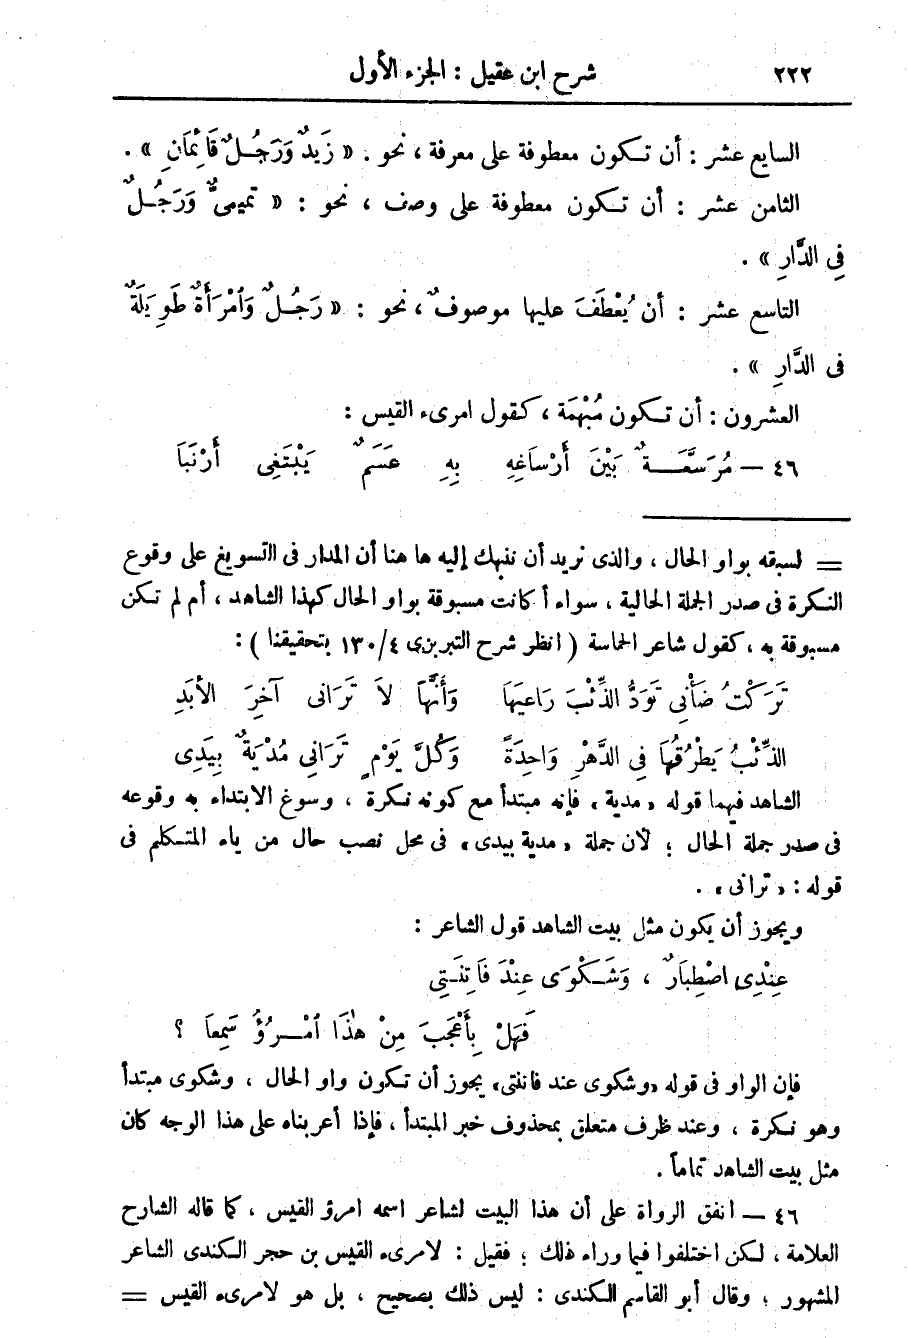 ٢٢٢ شرح ابن عقيل : الجزء الأول
السابع عشر : أن تكون معطوفة على معرفة ، نحو . « زَيدٌ وَرَجُلٌ قَائِمَانِ » .
الثامن عشر : أن تكون معطوفة على وصف ، نحو : « تميمىٌّ وَرَجُلٌ
فِى الدَّارِ » .
التاسع عشر : أن يُعْطَفَ عليها موصوفٌ ، نحو : « رَجُلٌ وَٱمْرَأَةٌ طَوِيلَةٌ
فى الدَّارِ » .
العشرون : أن تكون مُبْهَمَة ، كقول امرىء القيس :
٤٦ – مُرَسَّعَةٌ بَيْنَ أَرْسَاغِهِ بِهِ عَسَمٌ يَبْتَغِى أَرْنَبَا
= لسبقه بواو الحال ، والذى نريد أن ننبهك إليه ها هنا أن المدار فى التسويغ على وقوع
النكرة فى صدر الجملة الحالية ، سواء أ كانت مسبوقة بواو الحال كهذا الشاهد ، أم لم تكن
مسبوقة به ، كقول شاعر الحماسة ( انظر شرح التبريزى ٤/١٣٠ بتحقيقنا ) :
تَرَكْتُ ضَأْنِى تَوَدُّ الذِّئْبَ رَاعِيَهَا وَأَنَّهَا لاَ تَرَانى آخِرَ الأبَدِ
الذِّئْبُ يَطْرُقُهَا فِى الدَّهْرِ وَاحِدَةً وَكُلَّ يَوْمٍ تَرَانِى مُدْيَةٌ بِيَدِى
الشاهد فيهما قوله «مدية» فإنه مبتدأ مع كونه نكرة ، وسوغ الابتداء به وقوعه
فى صدر جملة الحال ؛ لأن جملة «مدية بيدى» فى محل نصب حال من ياء المتكلم فى
قوله : «ترانى» .
ويجوز أن يكون مثل بيت الشاهد قول الشاعر :
عِنْدِى اصْطِبَارٌ ، وَشَكْوَى عِنْدَ فَاتِنَتِى
فَهَلْ بِأَعْجَبَ مِنْ هٰذَا ٱمْرُؤٌ سَمِعاَ ؟
فإن الواو فى قوله «وشكوى عند فاتنتى» يجوز أن تكون واو الحال ، وشكوى مبتدأ
وهو نكرة ، وعند ظرف متعلق بمحذوف خبر المبتدأ ، فإذا أعربناه على هذا الوجه كان
مثل بيت الشاهد تماماً .
٤٦ – اتفق الرواة على أن هذا البيت لشاعر اسمه امرؤ القيس ، كما قاله الشارح
العلامة ، لكن اختلفوا فيما وراء ذلك ؛ فقيل : لامرىء القيس بن حجر الكندى الشاعر
المشهور ، وقال أبو القاسم الكندى : ليس ذلك بصحيح ، بل هو لامرىء القيس =